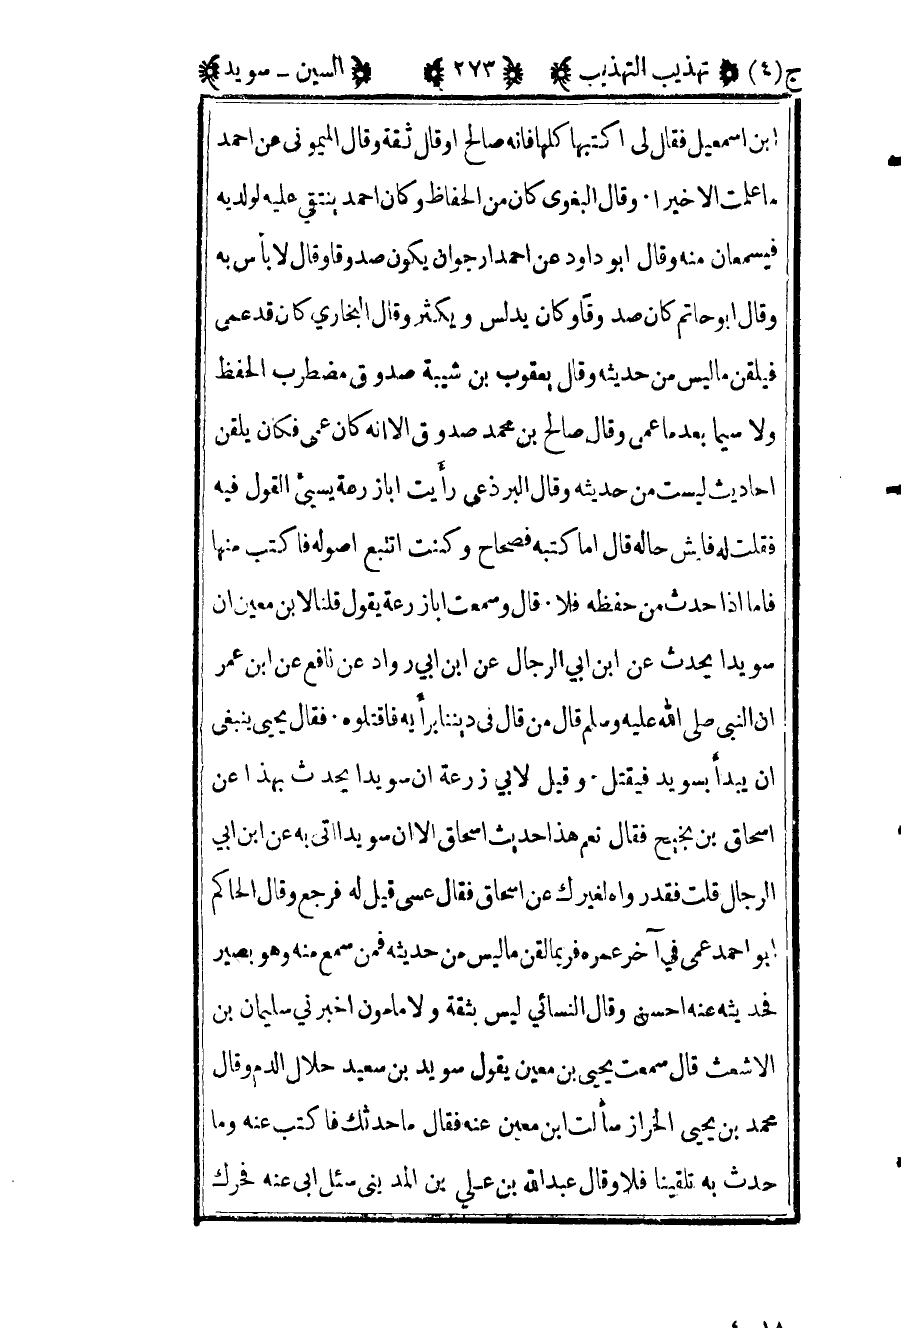 ج(٤) تهذيب التهذيب ٢٧٣ السين ـ سويد
ابن اسمعيل فقال لى اكتبها كلها فانه صالح او قال ثقة وقال الميمونى عن احمد
ما علمت الا خيرا · وقال البغوى كان من الحفاظ وكان احمد ينتقي عليه لولديه
فيسمعان منه وقال ابو داود عن احمد ارجوان يكون صدوقا وقال لا بأس به
وقال ابوحاتم كان صدوقا وكان يدلس ويكثر وقال البخاري كان قد عمى
فيلقن ما ليس من حديثه وقال يعقوب بن شيبة صدوق مضطرب الحفظ
ولا سيما بعد ما عمى وقال صالح بن محمد صدوق الا انه كان عمى فكان يلقن
احاديث ليست من حديثه وقال البرذعى رأيت ابازرعة يسيئ القول فيه
فقلت له فايش حاله قال اما كتبه فصحاح وكنت اتتبع اصوله فاكتب منها
فاما اذا حدث من حفظه فلا · قال وسمعت ابازرعة يقول قلنا لابن معين ان
سويدا يحدث عن ابن ابي الرجال عن ابن ابي رواد عن نافع عن ابن عمر
ان النبى صلى الله عليه وسلم قال من قال فى ديننا برأيه فاقتلوه · فقال يحيى ينبغى
ان يبدأ بسويد فيقتل · وقيل لابي زرعة ان سويدا يحدث بهذا عن
اسحاق بن نجيح فقال نعم هذا حديث اسحاق الا ان سويدا اتى به عن ابن ابي
الرجال قلت فقد رواه لغيرك عن اسحاق فقال عسى قيل له فرجع وقال الحاكم
ابو احمد عمى في آخر عمره فربما لقن ما ليس من حديثه فمن سمع منه وهو بصير
فحديثه عنه احسن وقال النسائي ليس بثقة ولا مامون اخبرني سليمان بن
الاشعث قال سمعت يحيى بن معين يقول سويد بن سعيد حلال الدم وقال
محمد بن يحيى الخراز سألت ابن معين عنه فقال ما حدثك فاكتب عنه وما
حدث به تلقينا فلا وقال عبدالله بن علي بن المدينى سئل ابى عنه فحرك